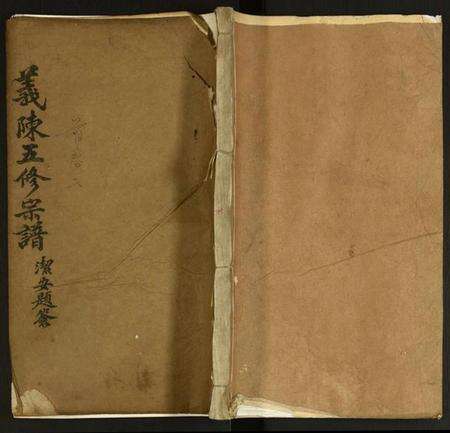 義陳五修宗譜
潔安題簽